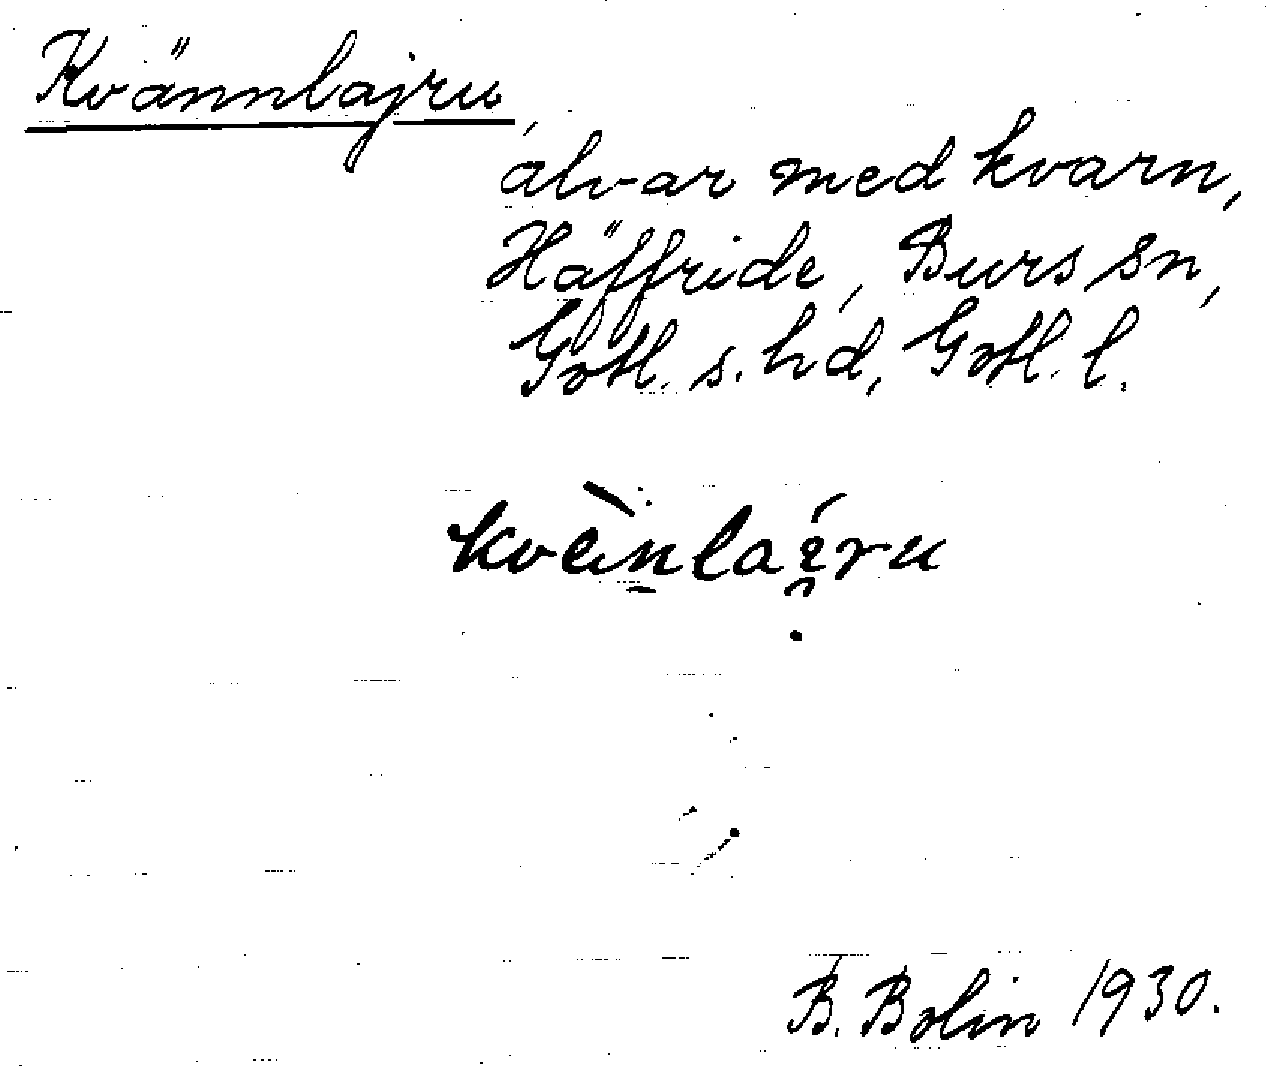 Kvännlajru,
alvar med kvarn,
Häffride, Burs sn,
Gotl. s. hd, Gotl. l.
B. Bolin 1930.